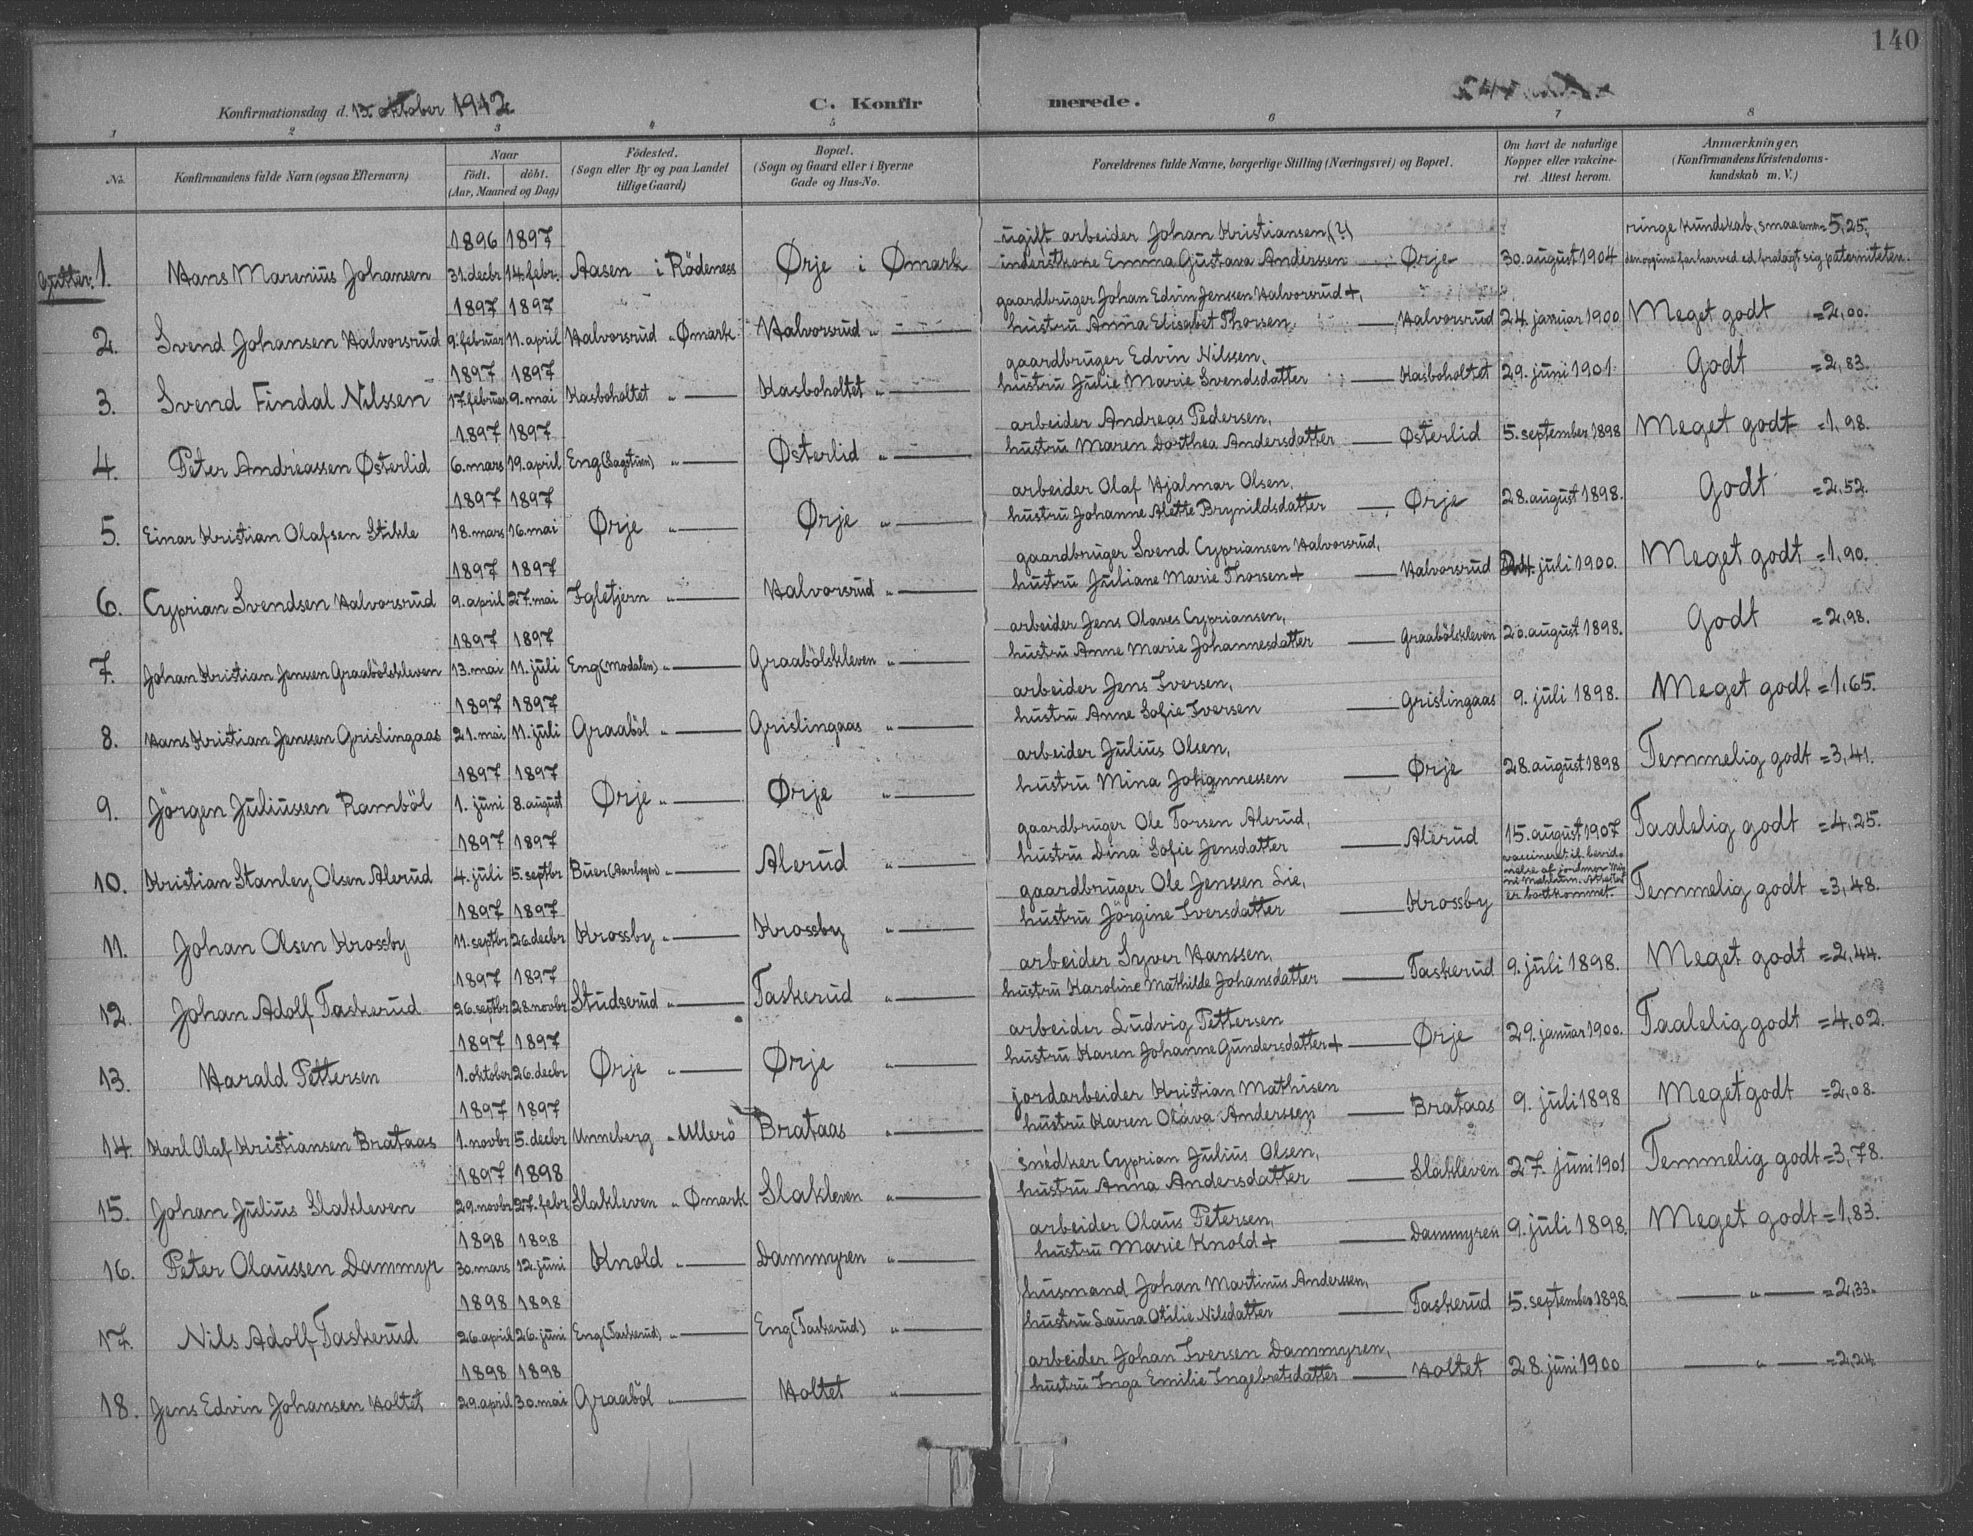 140
Konfirmationsdag d. 13. oktober 1912
C. Konfirmerede.
1 2 3 4 5 6 7 8
No.
Konfirmandens fulde Navn (ogsaa Efternavn)
Naar födt. döbt. (Aar, Maaned og Dag)
Födested. (Sogn eller By og paa Landet tillige Gaard)
Bopæl. (Sogn og Gaard eller i Byerne Gade og Hus-No.
Forældrenes fulde Navne, borgerlige Stilling (Næringsvei) og Bopæl.
Om havt de naturlige Kopper eller vakcineret. Attest herom.
Anmærkninger, (Konfirmandens Kristendomskundskab m. V.)
Gutter: 1. Hans Marenius Johansen 1896 31. decbr 1897 14. febr. Aasen i Rödeness Ørje i Ømark ugift arbeider Johan Kristiansen (?) inderstkone Emma Gustava Anderssen — Ørje 30. august 1904 ringe kundskab, smaa evner = 5,25. den opgivne far har ved ed fralagt sig paterniteten.
2. Svend Johansen Halvorsrud 1897 9. februar 1897 11. april Halvorsrud „ Ømark Halvorsrud „ — gaardbruger Johan Edvin Jenssen Halvorsrud +, hustru Anna Elisabet Thorsen — Halvorsrud 24. januar 1900 Meget godt = 2,00.
3. Svend Findal Nilssen 1897 17. februar 1897 9. mai Kasboholtet „ — Kasboholtet „ — gaardbruger Edvin Nilssen, hustru Julie Marie Svendsdatter — Kasboholtet 29. juni 1901. Godt = 2,83.
4. Peter Andreassen Østerlid 1897 6. mars 1897 19. april Eng (Sagstuen) „ — Østerlid „ — arbeider Andreas Pedersen, hustru Maren Dorthea Andersdatter — Østerlid 5. september 1898 Meget godt = 1,98.
5. Einar Kristian Olafsen Stikle 1897 18. mars 1897 16. mai Ørje „ — Ørje „ — arbeider Olaf Hjalmar Olsen, hustru Johanne Alette Brynildsdatter — Ørje 28. august 1898. Godt = 2,52.
6. Cyprian Svendsen Halvorsrud 1897 9. april 1897 27. mai Igletjern „ — Halvorsrud „ — gaardbruger Svend Cypriansen Halvorsrud, hustru Juliane Marie Thorsen + — Halvorsrud 24. juli 1900. Meget godt = 1,90.
7. Johan Kristian Jenssen Graabölskleven 1897 13. mai 1897 11. juli Eng (Modalen) „ — Graabölskleven „ — arbeider Jens Olaves Cypriansen, hustru Anne Marie Johannesdatter — Graabölskleven 20. august 1898. Godt = 2,98.
8. Hans Kristian Jenssen Grislingaas 1897 21. mai 1897 11. juli Graaböl „ — Grislingaas „ — arbeider Jens Iversen, hustru Anne Sofie Iversen — Grislingaas 9. juli 1898. Meget godt = 1,65.
9. Jörgen Juliussen Ramböl 1897 1. juni 1897 8. august Ørje „ — Ørje „ — arbeider Julius Olsen, hustru Mina Johannessen — Ørje 28. august 1898 Temmelig godt = 3,41.
10. Kristian Stanley Olsen Alerud 1897 4. juli 1897 5. septbr Buer (Aarbogen) „ — Alerud „ — gaardbruger Ole Torsen Alerud, hustru Dina Sofie Jensdatter — Alerud 15. august 1907 Taalelig godt = 4,25.
11. Johan Olsen Krossby 1897 11. septbr 1897 26. decbr Krossby „ — Krossby „ — gaardbruger Ole Jenssen Lie, hustru Jörgine Iversdatter — Krossby vaccineret if. bevidnelse af jordmor Mæhlum. Attesten er bortkommet. Temmelig godt = 3,48.
12. Johan Adolf Taskerud 1897 26. septbr 1897 28. novbr Studserud „ — Taskerud „ — arbeider Syver Hanssen, hustru Karoline Mathilde Johansdatter — Taskerud 9. juli 1898. Meget godt = 2,44.
13. Harald Pettersen 1897 1. oktober 1897 26. decbr Ørje „ — Ørje „ — arbeider Ludvig Pettersen hustru Karen Johanne Gundersdatter + — Ørje 29. januar 1900. Taalelig godt = 4,02.
14. Karl Olaf Kristiansen Brataas 1897 1. novbr 1897 5. decbr Unneberg „ Ullerö Brataas „ — jordarbeider Kristian Mathisen hustru Karen Olava Anderssen — Brataas 9. juli 1898 Meget godt = 2,08.
15. Johan Julius Slakleven 1897 29. novbr 1898 27. febr Slakleven „ Ømark Slakleven „ — snedker Cyprian Julius Olsen, hustru Anna Andersdatter — Slakleven 27. juni 1901 Temmelig godt = 3,78.
16. Peter Olaussen Dammyr 1898 30. mars 1898 12. juni Knold „ — Dammyren „ — arbeider Olaus Petersen, hustru Marie Knold + — Dammyren 9. juli 1898. Meget godt = 1,83.
17. Nils Adolf Taskerud 1898 26. april 1898 26. juni Eng (Taskerud) „ — Eng (Taskerud) „ — husmand Johan Martinus Anderssen, hustru Laura Otilie Nilsdatter — Taskerud 5. september 1898. — „ — = 2,33.
18. Jens Edvin Johansen Holtet 1898 29. april 1898 30. mai Graaböl „ — Holtet „ — arbeider Johan Iversen Dammyren, hustru Inga Emilie Ingebretsdatter — Holtet 28. juni 1900 — „ — = 2,24.